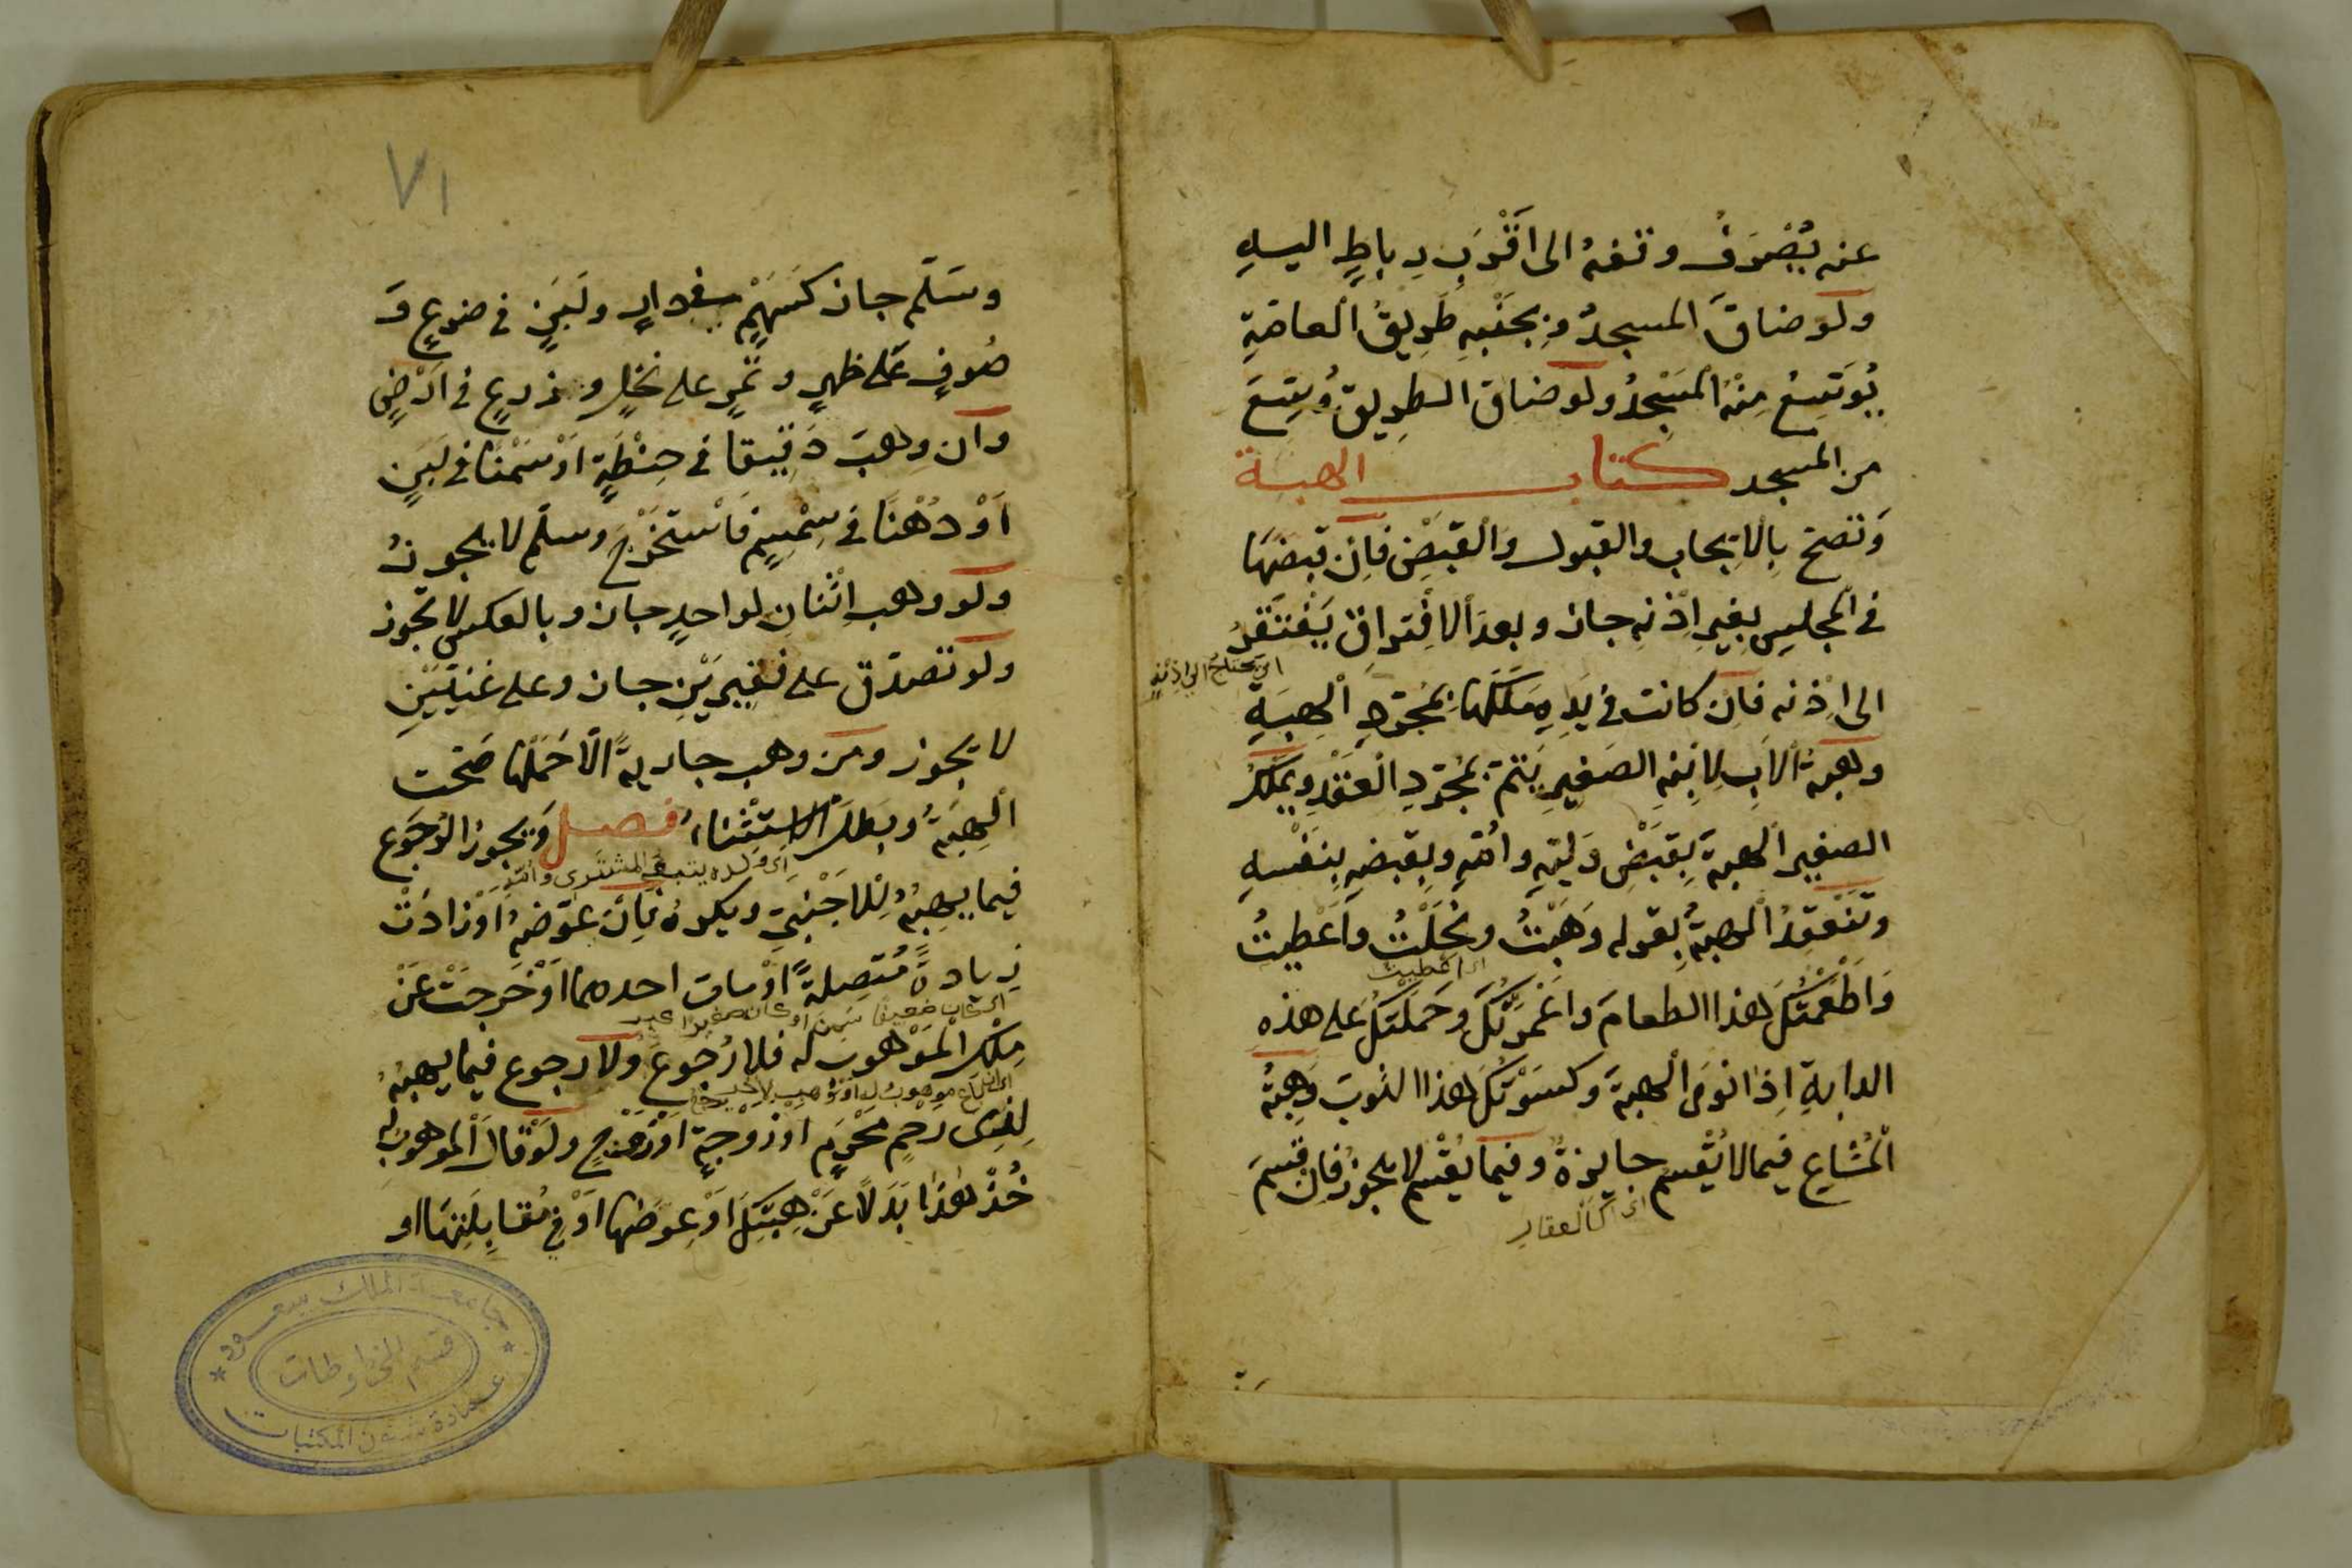 عنه يُصْرَفُ وقفهُ الى اَقْرَبِ رِباطٍ اليهِ
ولو ضاقَ المسجدُ وبجَنْبِهِ طَرِيقُ العامّةِ
يُوَسَّعُ مِنْهُ المَسْجِدُ ولو ضاق الطريق وُسِّعَ
من المسجد كتاب الهبة
وتصحّ بِالاِيجابِ والقبول والقَبْضِ فاِن قبضَهَا
فى المجلِسِ بغيرِ اِذْنهِ جاز وبعدَ الاِفْتراقِ يَفْتَقِرُ
اى يحتاج الى اذنه
الى اِذْنه فاِن كانت فى يَدِهِ مَلَكَها بمُجرَّدِ الهِبَةِ
وهبةُ الاَبِ لاِبْنِهِ الصغيرِ يَتمّ بمُجَرّدِ العَقْدِ ويملكُ
الصغيرُ الهبةَ بِقَبْضِ وَليّهِ واُمّهِ وبِقبضِهِ بنَفْسِهِ
وتَنْعقدُ الهبةُ بقوله وَهَبْتُ ونَحَلْتُ واَعْطيتُ
اى اعطيت
وَاَطْعَمْتُكَ هذا الطعامَ واَعْمَرْتُكَ وحَمَلْتُكَ على هذه
الدابةِ اِذا نوى الهبةَ وكسَوْتُكَ هذا الثوبَ وهِبةُ
المُشاعِ فيما لا يُقْسم جايزةٌ وفيما يُقْسم لا يجوزُ فاِن قسمَ
اى كالعقارِ
٧١
وسَلّم جاز كَسَهْمٍ فى دارٍ ولَبَنٍ فى ضرعٍ وَ
صُوفٍ عَلى ظهرٍ وتمرٍ على نخلٍ وزرعٍ فى اَرْضٍ
واِن وهبَ دَقيقا فى حِنْطَةٍ اَوْ سَمْنًا فى لَبَنٍ
اَوْ دُهْنًا فى سِمْسِمٍ فَاسْتخْرَجَ وسلّم لا يجوزُ
ولو وهب اِثْنانِ لواحدٍ جاز وبالعكس لا تجوز
ولو تصدّق على فقيريْنِ جاز وعلى غنيّيْنِ
لا يجوز ومَن وهب جاريةً الّا حَمْلَها صَحّت
الهِبَةُ وبَطَلَ الاستِثْناءُ فصل وَيجوزُ الرُجوُع
اى ولده يتبع المشترى وامّه
فيما يهِبُهُ لِلاَجْنبِىِّ ويكرهُ فاِن عوّضهُ اَوْ زادَتْ
زيادةً مُتّصِلةً اَوْ مات احدهما اَوْ خَرجَتْ عَنْ
اى كان ضعيفا سَمِنَ او كان صغيرا كبر
مِلْكِ المَوْهوبِ له فلا رُجوعَ ولا رجوعَ فيما يهبُهُ
اى ان باع موهوبُ له اَوْ وهب لاخر
لِذِى رحِمٍ مَحْرَمٍ اَوْ زَوْجةٍ اَوْ زَوْجٍ ولَوْ قالَ الموهوبُ له
خُذْ هَذا بَدَلًا عَنْ هِبَتِكَ اَوْ عِوَضَها اَوْ فِى مُقابِلَتِهَا او
جامعة الملك سعود
قسم المخطوطات
عمادة شئون المكتبات